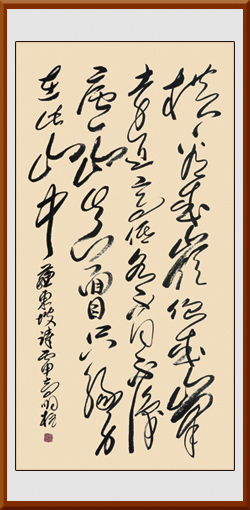 橫看成嶺側成峯
遠近高低各不同不識
廬山真面目只緣身
在此山中
蘇東坡詩丙申